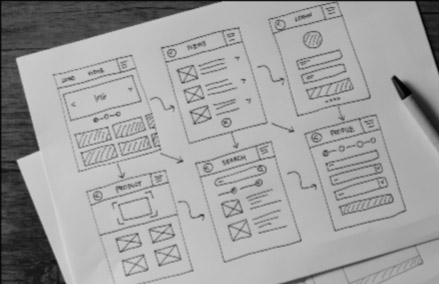 HOME
IMG
ITEMS
LOGIN
PRODUCT
SEARCH
PROFILE